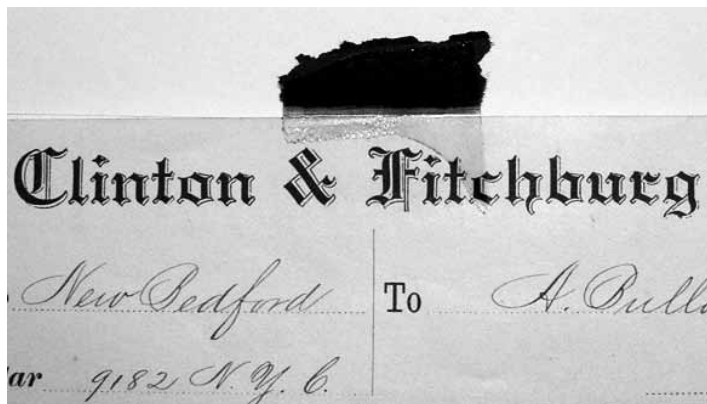 Clinton & Fitchburg
New Bedford To A. Bull
ar 9182 N. Y. C.